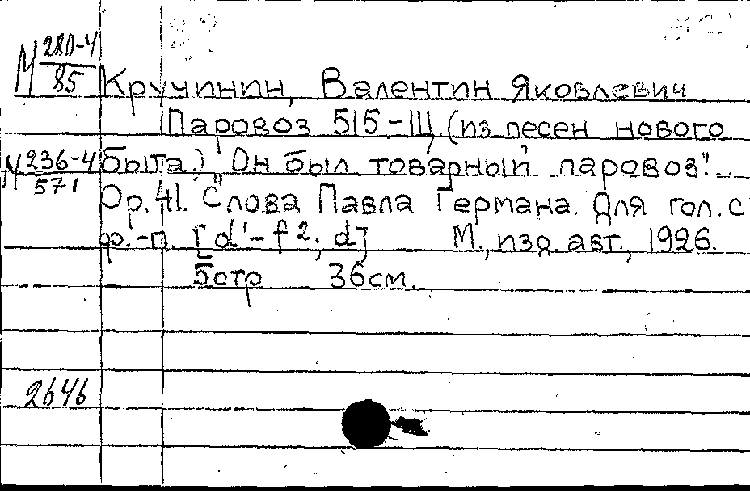 М 280-4
85
Кручинин, Валентин Яковлевич
Паровоз 515-Щ (из песен нового
М 236-4
571
быта.) "Он был товарный паровоз".
Op. 41. Слова Павла Германа. Для гол. с
ф.-п. [d'-f2; d] М., изд. авт., 1926.
5стр 36см.
2646